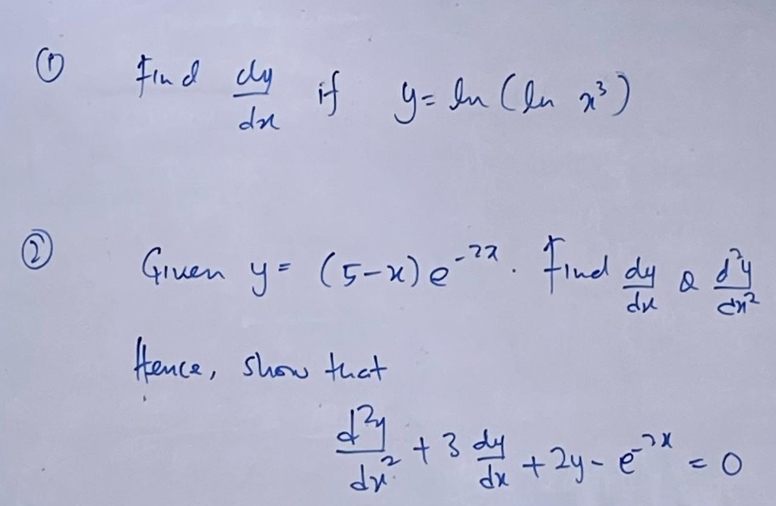 ① Find dy/dx if y = ln (ln x³)
② Given y = (5-x) e⁻²ˣ. Find dy/dx & d²y/dx²
Hence, show that
d²y/dx² + 3 dy/dx + 2y - e⁻²ˣ = 0